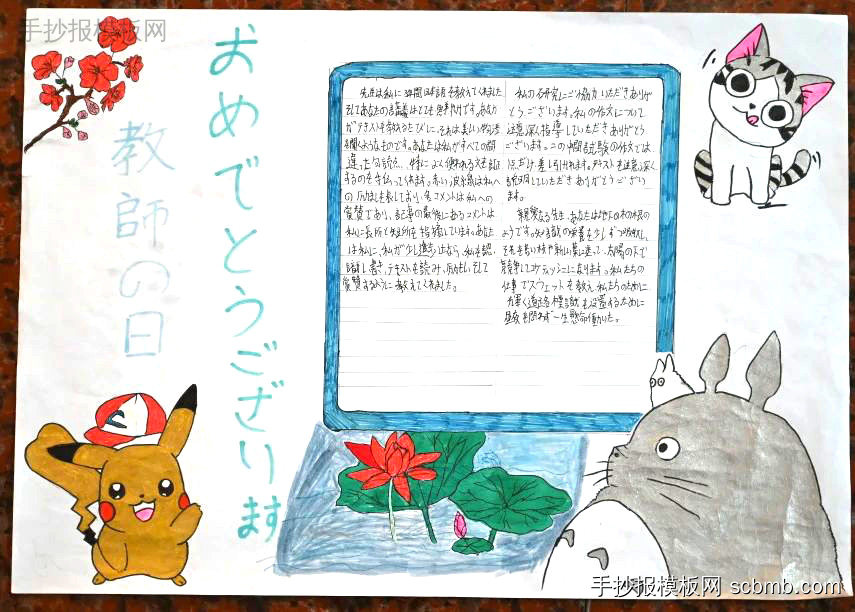 手抄报模板网
教師の日
おめでとうございます
先生は私に
そしてあなたの講義はとても
がテキストを教えるたびに、それは美しい
を聞くようなものです。あなたは私がすべての間
違った句読点、特によく使われる文を訂正
するのを手伝ってくれます。赤い波線は私へ
の励ましを表しており、各コメントは私への
賞賛であり、記事の最後にあるコメントは
私に長所と短所を指摘しています。あなた
は私に、私が少し進歩したなら、私を認
識し、書き、テキストを読み、励まし、そして
賞賛するように教えてくれました。
私の研究にご協力いただきありが
とうございます。私の作文について
注意深く指導していただきありがとう
ございます。この中間試験の作文では、
点だけ差し引かれます。テキストを注意深く
説明していただきありがとうござい
ます。
親愛なる先生、あなたは地下の木の根の
ようです。知識の栄養を少しずつ
それを若い枝や新しい葉に送って、太陽の下で
私たちの
仕事でスウェットを教え、私たちのために
道路標識を設置するために
昼夜を問わず一生懸命働いた。
手抄报模板网 scbmb.com